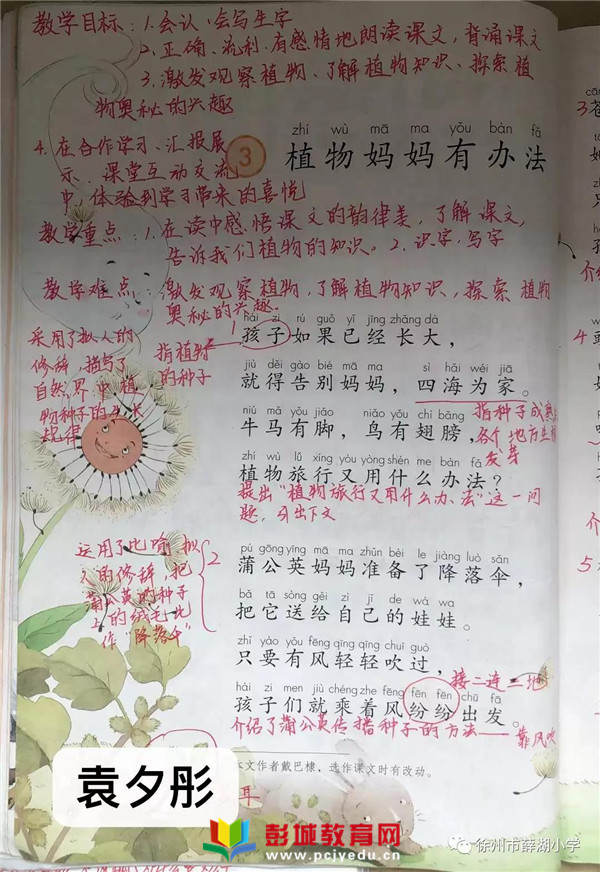 教学目标：1.会认、会写生字
2.正确、流利、有感情地朗读课文，背诵课文
3.激发观察植物、了解植物知识、探索植
物奥秘的兴趣
4.在合作学习、汇报展
示、课堂互动交流
中，体验到学习带来的喜悦
zhí wù mā ma yǒu bàn fǎ
3 植物妈妈有办法
教学重点：1.在读中感悟课文的韵律美，了解课文，
告诉我们植物的知识。2.识字、写字
教学难点：激发观察植物，了解植物知识，探索植物
奥秘的兴趣.
采用了拟人的
修辞，描写了
自然界中植
物种子的生长
规律
指植物
的种子
1
hái zi rú guǒ yǐ jīng zhǎng dà
孩子如果已经长大，
jiù děi gào bié mā ma sì hǎi wéi jiā
就得告别妈妈，四海为家。
指种子成熟
各个地方生根
发芽
niú mǎ yǒu jiǎo niǎo yǒu chì bǎng
牛马有脚，鸟有翅膀，
zhí wù lǚ xíng yòu yòng shén me bàn fǎ
植物旅行又用什么办法？
提出“植物旅行又用什么办法”这一问
题，引出下文
运用了比喻、拟
人的修辞，把
蒲公英的种子
上的绒毛比
作“降落伞”
2
pú gōng yīng mā ma zhǔn bèi le jiàng luò sǎn
蒲公英妈妈准备了降落伞，
bǎ tā sòng gěi zì jǐ de wá wa
把它送给自己的娃娃。
zhǐ yào yǒu fēng qīng qīng chuī guò
只要有风轻轻吹过，
接二连三地
hái zi men jiù chéng zhe fēng fēn fēn chū fā
孩子们就乘着风纷纷出发。
介绍了蒲公英传播种子的方法——靠风吹
本文作者戴巴棣，选作课文时有改动。
袁夕彤
耳
彭城教育网
www.pcjyedu.cn
徐州市薛湖小学